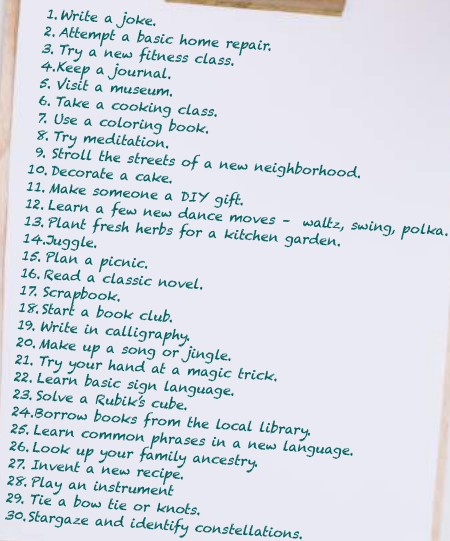 1. Write a joke.
2. Attempt a basic home repair.
3. Try a new fitness class.
4. Keep a journal.
5. Visit a museum.
6. Take a cooking class.
7. Use a coloring book.
8. Try meditation.
9. Stroll the streets of a new neighborhood.
10. Decorate a cake.
11. Make someone a DIY gift.
12. Learn a few new dance moves - waltz, swing, polka.
13. Plant fresh herbs for a kitchen garden.
14. Juggle.
15. Plan a picnic.
16. Read a classic novel.
17. Scrapbook.
18. Start a book club.
19. Write in calligraphy.
20. Make up a song or jingle.
21. Try your hand at a magic trick.
22. Learn basic sign language.
23. Solve a Rubik's cube.
24. Borrow books from the local library.
25. Learn common phrases in a new language.
26. Look up your family ancestry.
27. Invent a new recipe.
28. Play an instrument
29. Tie a bow tie or knots.
30. Stargaze and identify constellations.